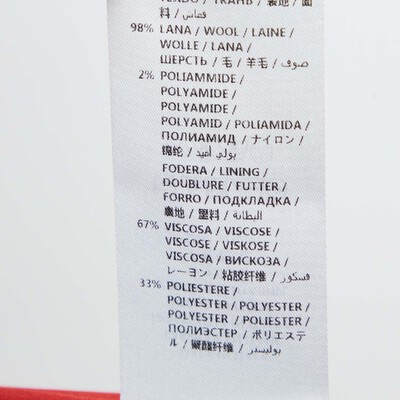 TESSUTO / ТКАНЬ / 裏地 / 面
料 / قماش
98% LANA / WOOL / LAINE /
WOLLE / LANA /
ШЕРСТЬ / 毛 / 羊毛 / صوف
2% POLIAMMIDE /
POLYAMIDE /
POLYAMIDE /
POLYAMID / POLIAMIDA /
ПОЛИАМИД / ナイロン /
锦纶 / بولي أميد
FODERA / LINING /
DOUBLURE / FUTTER /
FORRO / ПОДКЛАДКА /
裏地 / 里料 / البطانة
67% VISCOSA / VISCOSE /
VISCOSE / VISKOSE /
VISCOSA / ВИСКОЗА /
レーヨン / 粘胶纤维 / فسكوز
33% POLIESTERE /
POLYESTER / POLYESTER /
POLYESTER / POLIESTER /
ПОЛИЭСТЕР / ポリエステ
ル / 聚酯纤维 / بوليستر